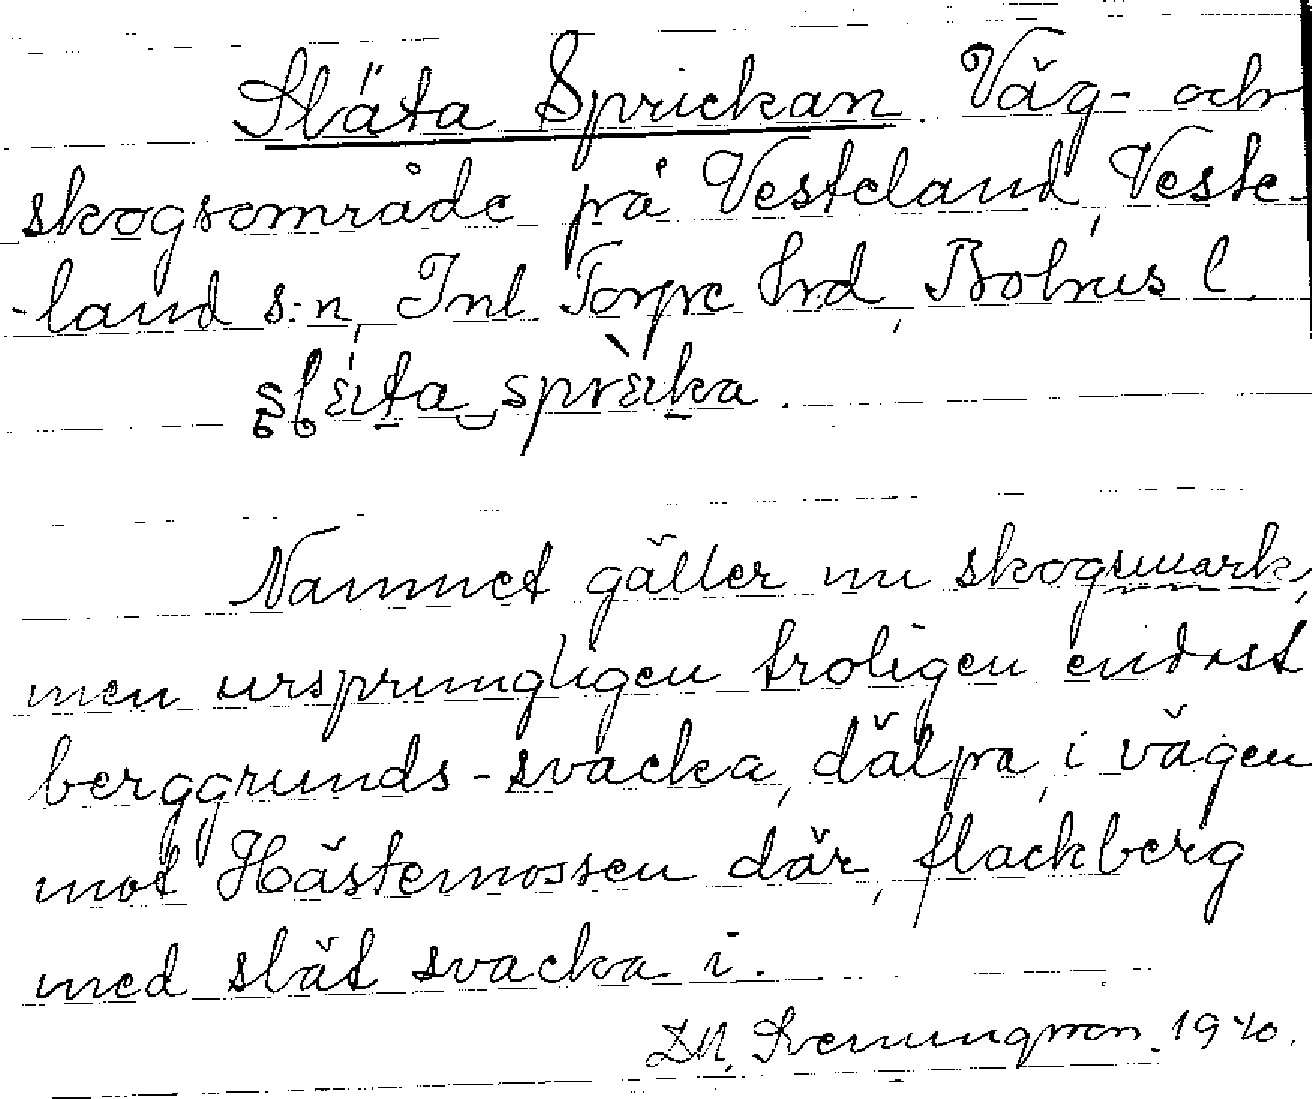 Släta Sprickan. Väg- och
skogsområde på Vesteland, Veste-
-land s:n, Inl. Torpe hrd, Bohus l.
Namnet gäller nu skogsmark,
men ursprungligen troligen endast
berggrunds-svacka, dälpa, i vägen
mot Hästemossen där, flackberg
med slät svacka i.
Svenungsson. 1940.